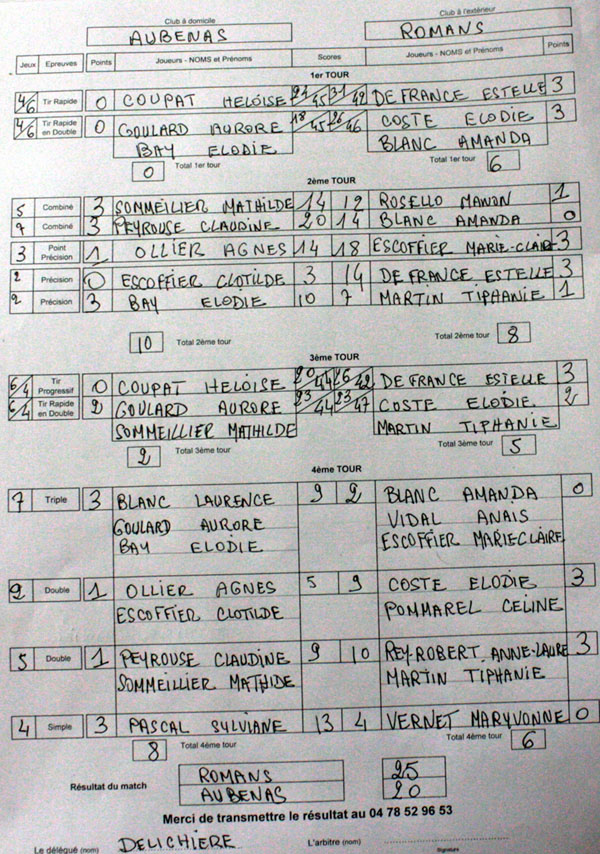 Club à domicile Club à l'extérieur
AUBENAS ROMANS
Jeux Epreuves Points Joueurs - NOMS et Prénoms Scores Joueurs - NOMS et Prénoms Points
1er TOUR
4/6 Tir Rapide 0 COUPAT HELOÏSE 21/45 31/42 DE FRANCE ESTELLE 3
4/6 Tir Rapide en Double 0 GOULARD AURORE 18/45 26/46 COSTE ELODIE 3
BAY ELODIE BLANC AMANDA
0 Total 1er tour Total 1er tour 6
2ème TOUR
5 Combiné 3 SOMMEILIER MATHILDE 14 12 ROSELLO MANON 1
Combiné 3 PEYROUSE CLAUDINE 20 14 BLANC AMANDA 0
3 Point Précision 1 OLLIER AGNES 14 18 ESCOFFIER MARIE-CLAIRE 3
2 Précision 0 ESCOFFIER CLOTILDE 3 14 DE FRANCE ESTELLE 3
2 Précision 3 BAY ELODIE 10 7 MARTIN TIPHANIE 1
10 Total 2ème tour Total 2ème tour 8
3ème TOUR
6/4 Tir Progressif 0 COUPAT HELOÏSE 20/44 26/42 DE FRANCE ESTELLE 3
6/4 Tir Rapide en Double 2 GOULARD AURORE 23/44 23/47 COSTE ELODIE 2
SOMMEILLIER MATHILDE MARTIN TIPHANIE
2 Total 3ème tour Total 3ème tour 5
4ème TOUR
7 Triple 3 BLANC LAURENCE 9 2 BLANC AMANDA 0
GOULARD AURORE VIDAL ANAIS
BAY ELODIE ESCOFFIER MARIE CLAIRE
2 Double 1 OLLIER AGNES 5 9 COSTE ELODIE 3
ESCOFFIER CLOTILDE POMMAREL CELINE
5 Double 1 PEYROUSE CLAUDINE 9 10 REY-ROBERT ANNE-LAURE 3
SOMMEILLIER MATHIDE MARTIN TIPHANIE
4 Simple 3 PASCAL SYLVIANE 13 4 VERNET MARYVONNE 0
8 Total 4ème tour Total 4ème tour 6
Résultat du match ROMANS 25
AUBENAS 20
Merci de transmettre le résultat au 04 78 52 96 53
Le délégué (nom) DELICHIERE L'arbitre (nom)
Signature